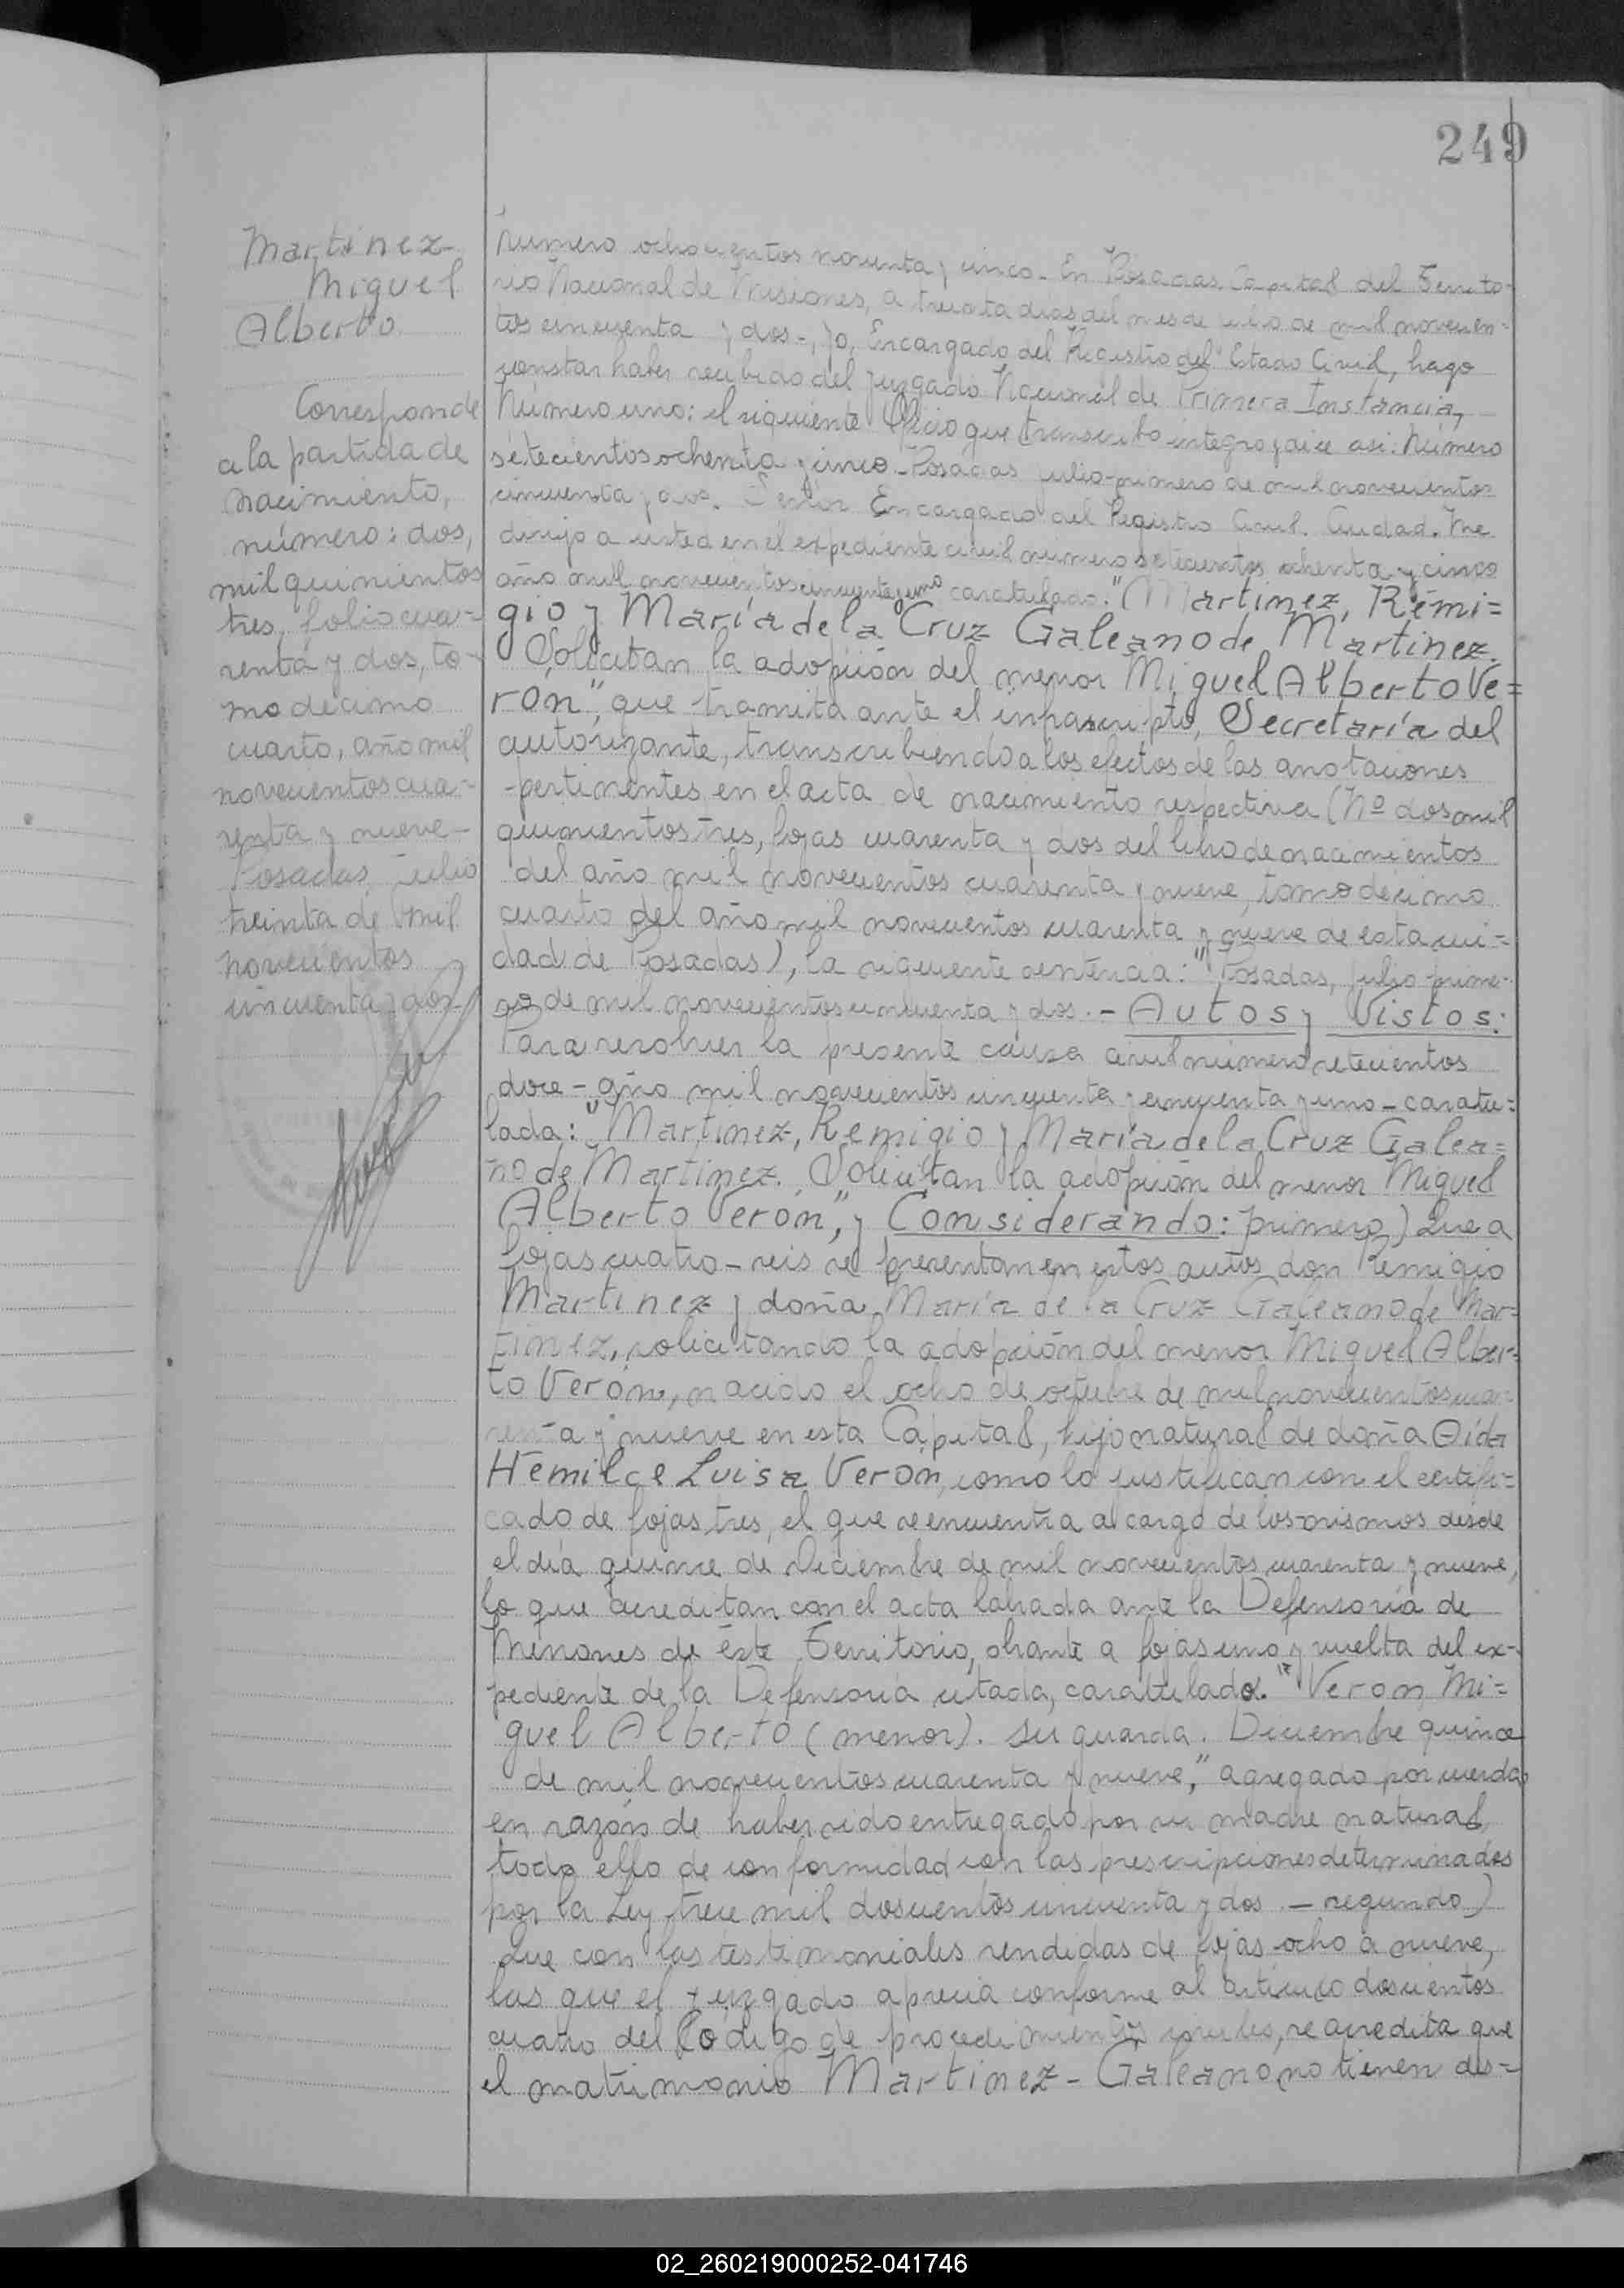 249
Martinez-
Miguel
Alberto
Corresponde
a la partida de
nacimiento,
número: dos,
mil quinientos
tres, folio cua=
renta y dos, to-
mo décimo
cuarto, año mil
novecientos cua-
renta y nueve-
Posadas, julio
treinta de mil
novecientos
cincuenta y dos-
Número ochocientos noventa y cinco- En Posadas Capital del Territo-
rio Nacional de Misiones, a treinta dias del mes de julio de mil novecien=
tos cincuenta y dos-, yo, Encargado del Registro del Estado Civil, hago
constar haber recibido del Juzgado Nacional de Primera Instancia,
Número uno: el siguiente Oficio que transcribo integro y dice asi: Número
setecientos ochenta y cinco- Posadas julio-primero de mil novecientos
cincuenta y dos. Señor Encargado del Registro Civil. Ciudad. Me
dirijo a usted en el expediente civil número setecientos ochenta y cinco
año mil novecientos cincuenta y uno caratulado: "Martinez, Remi=
gio y María de la Cruz Galeano de Martinez.
Solicitan la adopción del menor Miguel Alberto Ve=
rón", que tramita ante el infrascripto, Secretaría del
autorizante, transcribiendo a los efectos de las anotaciones
pertinentes en el acta de nacimiento respectiva (Nº dos mil
quinientos tres, fojas cuarenta y dos del libro de nacimientos
del año mil novecientos cuarenta y nueve, tomo décimo
cuarto del año mil novecientos cuarenta y nueve de esta ciu=
dad de Posadas), la siguiente sentencia: "Posadas, julio-prime-
ro de mil novecientos cincuenta y dos.- Autos y Vistos:
Para resolver la presente causa civil número setecientos
doce-año mil novecientos cincuenta y cincuenta y uno-caratu=
lada: "Martinez, Remigio y María de la Cruz Galea=
no de Martinez. Solicitan la adopción del menor Miguel
Alberto Verón", y Considerando: primero) Que a
fojas cuatro-seis se presentan en estos autos don Remigio
Martinez y doña María de la Cruz Galeano de Mar=
tinez, solicitando la adopción del menor Miguel Alber=
to Verón, nacido el ocho de octubre de mil novecientos cua-
renta y nueve en esta Capital, hijo natural de doña Aída
Hemilce Luisa Veron, como lo justifican con el certifi=
cado de fojas tres, el que se encuentra a cargo de los mismos desde
el día quince de Diciembre de mil novecientos cuarenta y nueve,
lo que acreditan con el acta labrada ante la Defensoría de
Menores de éste Territorio, obrante a fojas uno y vuelta del ex-
pediente de la Defensoría citada, caratulado: "Veron, Mi=
guel Alberto (menor). su guarda. Diciembre quince
de mil novecientos cuarenta y nueve", agregado por cuerda
en razón de haber sido entregado por su madre natural,
todo ello de conformidad con las prescripciones determinadas
por la Ley trece mil doscientos cincuenta y dos.- segundo)
Que con las testimoniales rendidas de fojas ocho a nueve,
las que el Juzgado aprecia conforme al artículo doscientos
cuatro del Código de procedimientos civiles, se acredita que
el matrimonio Martinez-Galeano no tienen des=
02_260219000252-041746